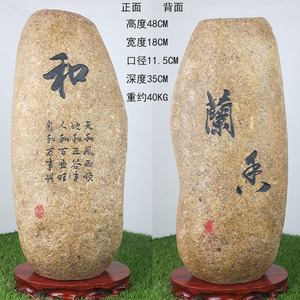 正面 背面
高度48CM
宽度18CM
口径11.5CM
深度35CM
重约40KG
和
天和風雨順
地和五谷丰
人和百业旺
家和万事兴
蘭
香